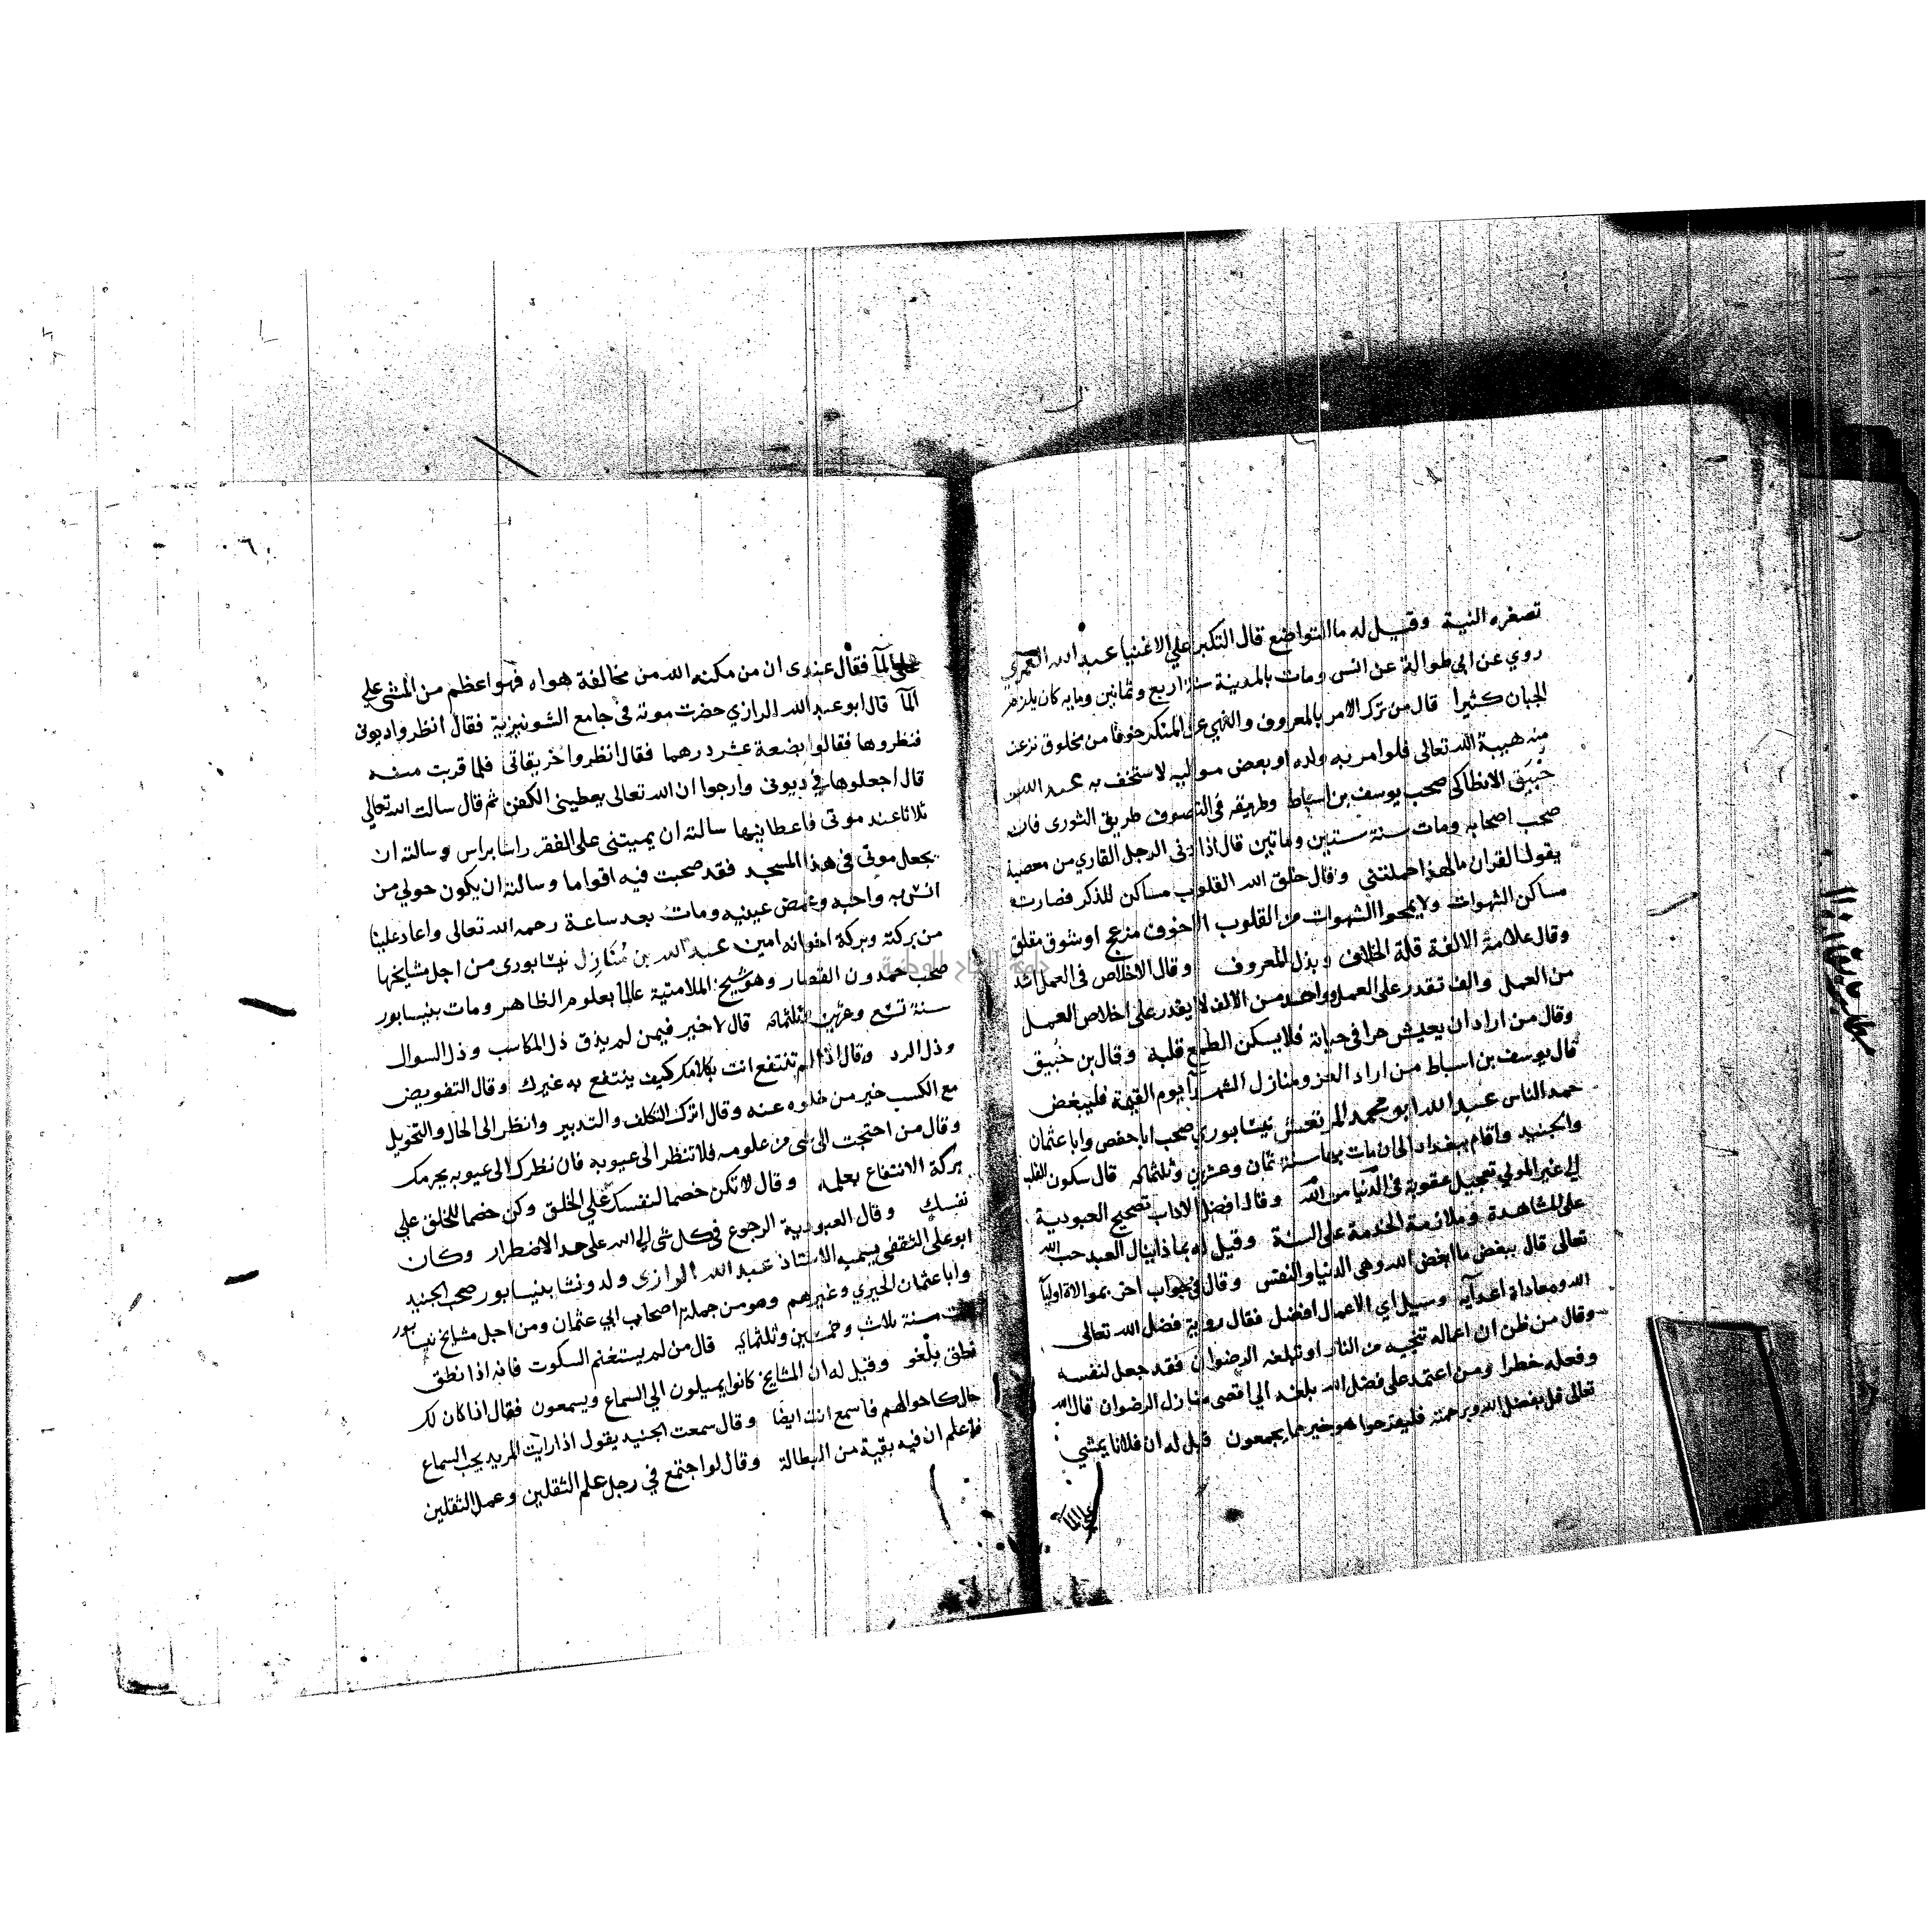 تصغره النية وقيل له ما التواضع قال التكبر علي الاغنيا عبد الله العمري
روي عن ابي طوالة عن انس ومات بالمدينة سنة اربع وثمانين ومايه كان يلزم
الجبان كثيرا قال من ترك الامر بالمعروف والنهي عن المنكر خوفا من مخلوق نزعت
منه هيبة الله تعالى فلو امر به ولده او بعض مواليه لاستخف به عبد الله بن
خبيق الانطاكي صحب يوسف بن اسباط وطريقه في التصوف طريق الثوري فانه
صحب اصحابه ومات سنة ستين وماتين قال اذا دنى الرجل القاري من معصية
يقول القران ما لهذا حملتني وقال خلق الله القلوب مساكن للذكر فصارت
مساكن الشهوات ولا يمحوا الشهوات من القلوب الا خوف مزعج او شوق مقلق
وقال علامة الالفة قلة الخلاف وبذل المعروف وقال الاخلاص في العمل اشد
من العمل والف تقدر على العمل وواحد من الالف لا يقدر على اخلاص العمل
وقال من اراد ان يعيش حرا في حياته فلا يسكن الطمع قلبه وقال بن خبيق
قال يوسف بن اسباط من اراد العز ومنازل الشهرا يوم القيمة فليبغض
حمد الناس عبد الله ابو محمد المرتعش نيسابوري صحب ابا حفص وابا عثمان
والجنيد واقام ببغداد الى ان مات بها سنة ثمان وعشرين وثلثمايه قال سكون القلب
الي غير المولي تعجيل عقوبة في الدنيا من الله وقال افضل الاداب تصحيح العبودية
على المشاهدة وملازمة الخدمة على السنة وقيل له بماذا ينال العبد حب الله
تعالى قال ببغض ما ابغض الله وهى الدنيا والنفس وقال في جواب اخر بموالاة اوليآ
الله ومعاداة اعدآيه وسيل اي الاعمال افضل فقال روية فضل الله تعالى
وقال من ظن ان اعماله تنجيه من النار او تبلغه الرضوان فقد جعل لنفسه
وفعله خطرا ومن اعتمد على فضل الله بلغه الي اقصى منازل الرضوان قال الله
تعالى قل بفضل الله وبرحمته فليفرحوا هو خير مما يجمعون قيل له ان فلانا يمشي
علي المآ
علي المآ فقال عندى ان من مكنه الله من مخالفة هواه فهو اعظم من المشى علي
المآ قال ابو عبد الله الرازي حضرت موته في جامع الشونيزية فقال انظروا ديونى
فنظروها فقالوا بضعة عشر درهما فقال انظروا خريقاتى فلما قربت منه
قال اجعلوها في ديونى وارجوا ان الله تعالى يعطينى الكفن ثم قال سالت الله تعالي
ثلاثا عند موتى فاعطانيها سالته ان يميتنى على الفقر راسا براس وسالته ان
يجعل موتى في هذا المسجد فقد صحبت فيه اقواما وسالته ان يكون حولي من
انس به واحبه وغمض عينيه ومات بعد ساعة رحمه الله تعالى واعاد علينا
من بركته وبركة اخوانه امين عبد الله بن مُنَازِل نيسابورى من اجل مشايخها
صحب حمدون القصار وهو شيخ الملامتية عالما بعلوم الظاهر ومات بنيسابور
سنة تسع وعشرين وثلثمائه قال لا خير فيمن لم يذق ذل المكاسب وذل السوال
وذل الرد وقال اذا لم تنتفع انت بكلامك كيف ينتفع به غيرك وقال التفويض
مع الكسب خير من خلوه عنه وقال اترك التكلف والتدبير وانظر الى الحال والتحويل
وقال من احتجت الى شى من علومه فلا تنظر الى عيوبه فان نظرك الى عيوبه يحرمك
بركة الانتفاع بعلمه وقال لا تكن خصما لنفسك علي الخلق وكن خصما للخلق علي
نفسك وقال العبودية الرجوع في كل شى الي الله على حد الاضطرار وكان
ابو علي الثقفى يسميه الاستاذ عبد الله الرازى ولد ونشا بنيسابور صحب الجنيد
وابا عثمان الحيري وغيرهم وهو من جملة اصحاب ابي عثمان ومن اجل مشايخ نيسابور
سنة ثلاث وخمسين وثلثمايه قال من لم يستغنم السكوت فانه اذا نطق
نطق بلغو وقيل له ان المشايخ كانوا يميلون الي السماع ويسمعون فقال اذا كان لك
حال كاحوالهم فاسمع انت ايضا وقال سمعت الجنيد يقول اذا رايت المريد يحب السماع
فاعلم ان فيه بقية من البطالة وقال لو اجتمع في رجل علم الثقلين وعمل الثقلين